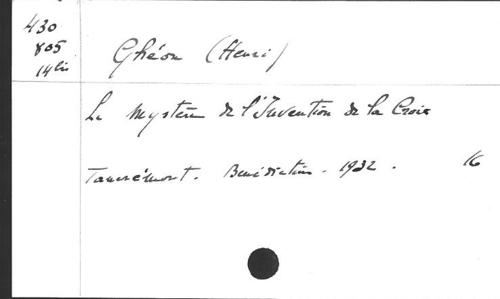 430
805
14bis
Ghéon (Henri)
Le Mystère de l'Invention de la Croix
Tancrémont. Bénédictins. 1932. 16